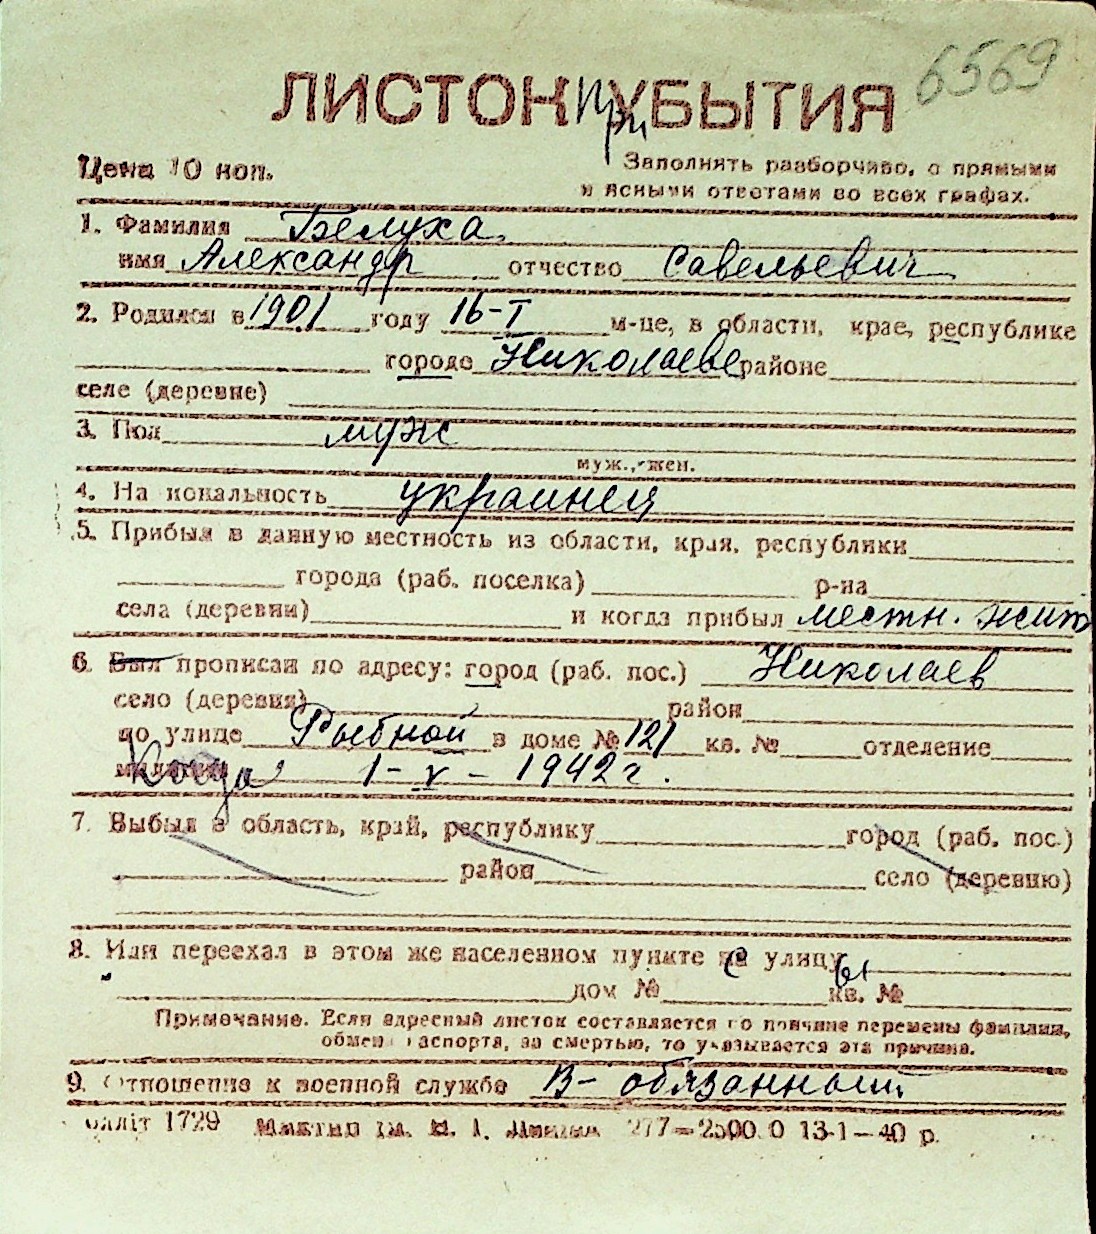 6569
ЛИСТОК при УБЫТИЯ
Цена 10 коп.
Заполнять разборчиво, с прямыми
и ясными ответами во всех графах.
1. Фамилия Белуха
имя Александр отчество Савельевич
2. Родился в 1901 году 16-I м-це, в области, крае, республике
городе Николаеве районе
селе (деревне)
3. Пол муж
муж., жен.
4. Национальность украинец
5. Прибыл в данную местность из области, края, республики
города (раб. поселка) р-на
села (деревни) и когда прибыл местн. жит
6. Был прописан по адресу: город (раб. пос.) Николаев
село (деревня) район
по улице Рыбной в доме № 121 кв. № отделение
Когда 1-V-1942 г.
7. Выбыл в область, край, республику город (раб. пос.)
район село (деревню)
8. Или переехал в этом же населенном пункте с улицы
дом № кв. №
Примечание. Если адресный листок составляется по причине перемены фамилии,
обмен паспорта, за смертью, то указывается эта причина.
9. Отношение к военной службе В-обязанный
обліт 1729 277—2500.0 13-1—40 р.